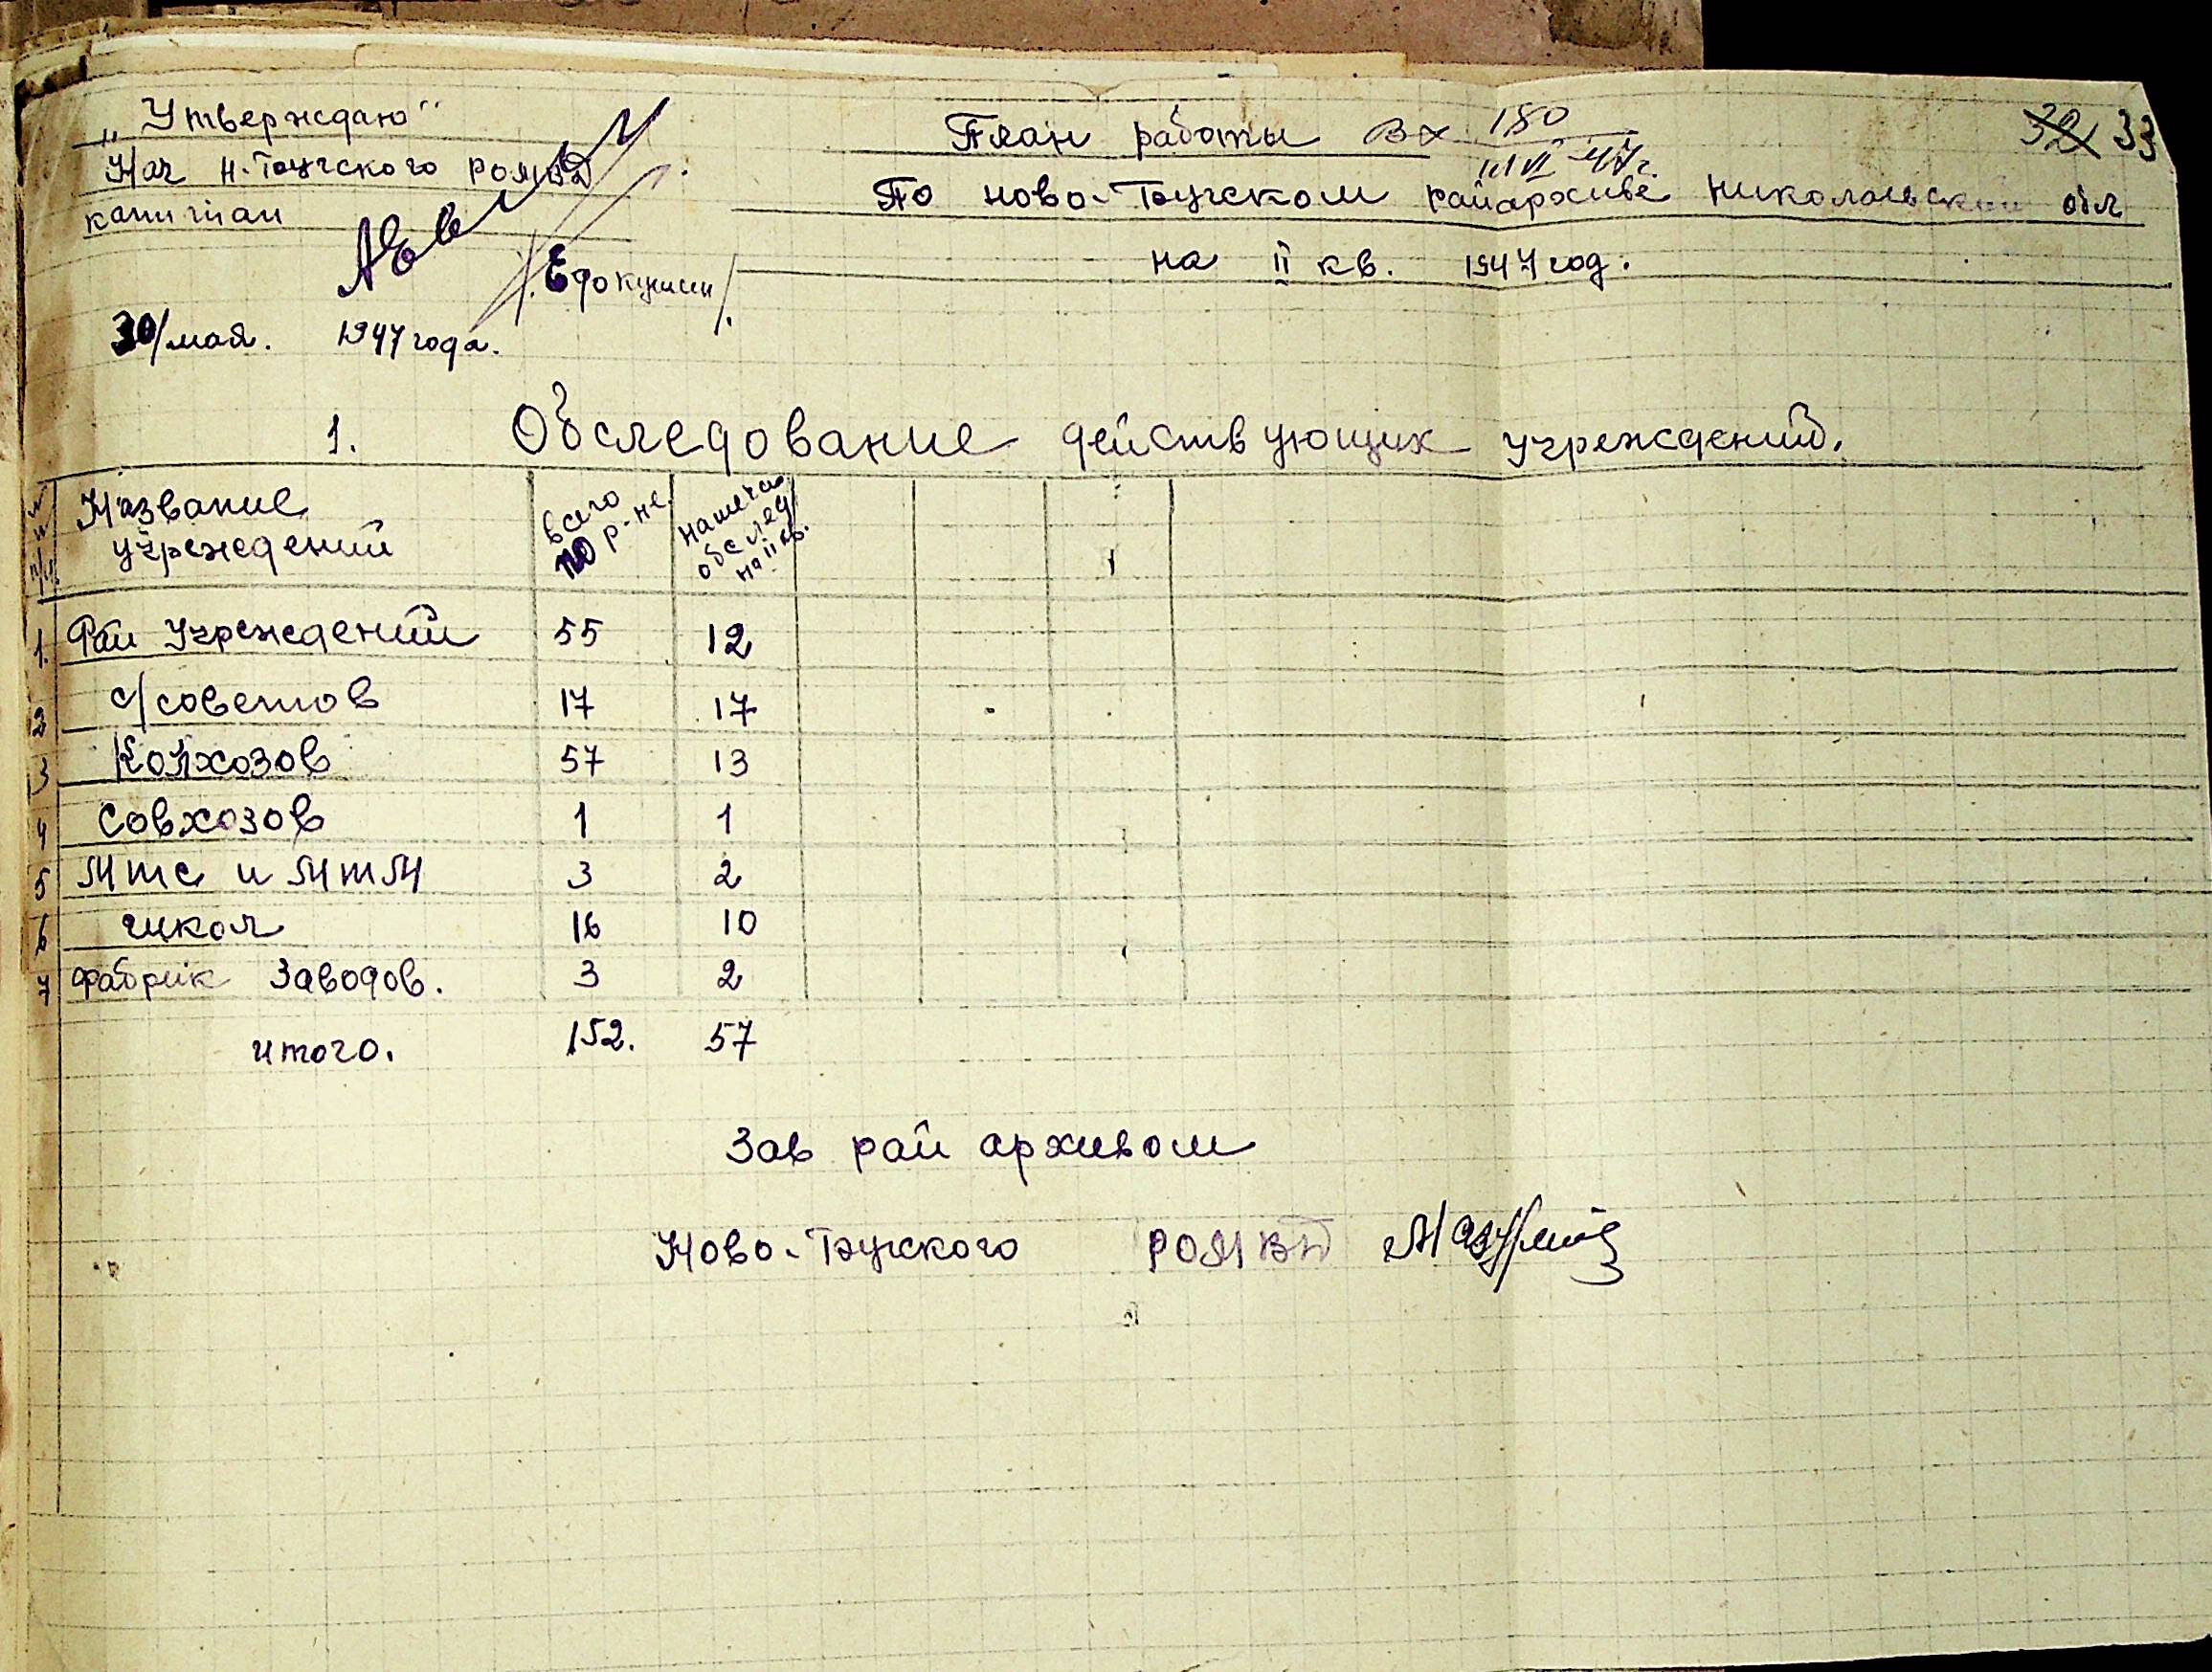 „Утверждаю"
Нач Н.-Бугского РОМВД
капитан
/. Едокушин /.
30/мая. 1947 года.
План работы Вх 180
VI 47г.
32 33
По Ново-Бугском райархиве Николаевской обл
на II кв. 1947 год.
1. Обследование действующих учреждений.
№ п/п Название учреждений всего по р-не. намечен обслед на II кв.
1. Рай учреждений 55 12
2 с/советов 17 17
3 Колхозов 57 13
4 Совхозов 1 1
5 МТС и МТМ 3 2
6 школ 16 10
7 фабрик заводов. 3 2
итого. 152. 57
Зав рай архивом
Ново-Бугского РОМВД